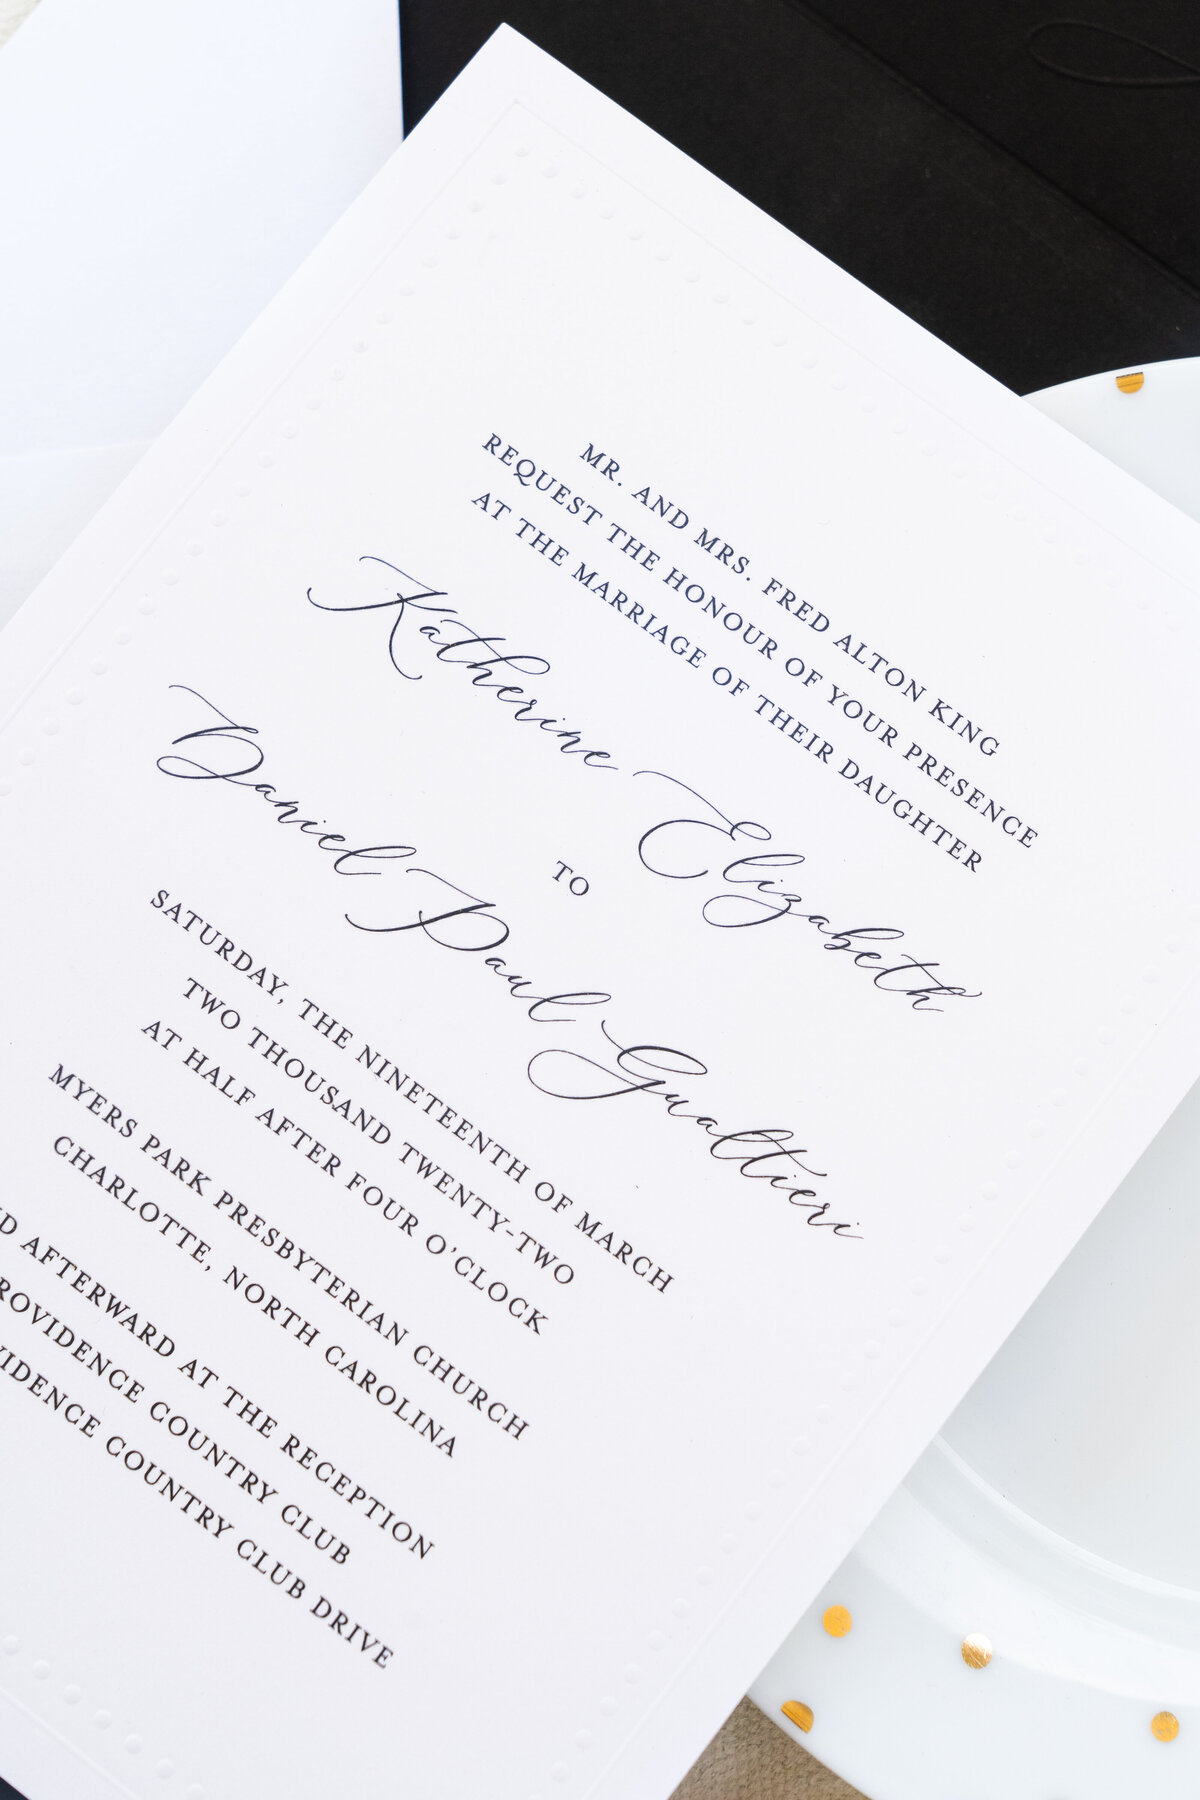 MR. AND MRS. FRED ALTON KING
REQUEST THE HONOUR OF YOUR PRESENCE
AT THE MARRIAGE OF THEIR DAUGHTER
Katherine Elizabeth
TO
Daniel Paul Gualtieri
SATURDAY, THE NINETEENTH OF MARCH
TWO THOUSAND TWENTY-TWO
AT HALF AFTER FOUR O'CLOCK
MYERS PARK PRESBYTERIAN CHURCH
CHARLOTTE, NORTH CAROLINA
AFTERWARD AT THE RECEPTION
PROVIDENCE COUNTRY CLUB
COUNTRY CLUB DRIVE